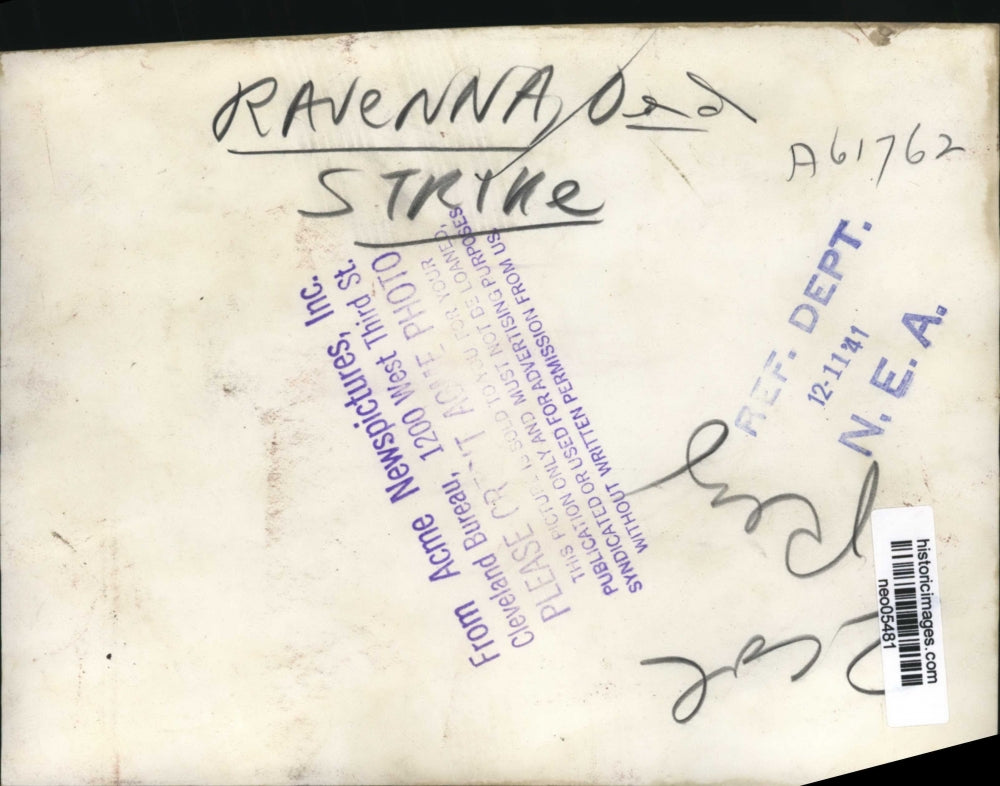 RAVENNA, Ord
STRIKE
A61762
REF. DEPT.
12·11·41
N. E. A.
From Acme Newspictures, Inc.
Cleveland Bureau, 1200 West Third St.
PLEASE CREDIT ACME PHOTO
THIS PICTURE IS SOLD TO YOU FOR YOUR
PUBLICATION ONLY AND MUST NOT BE LOANED,
SYNDICATED OR USED FOR ADVERTISING PURPOSES
WITHOUT WRITTEN PERMISSION FROM US.
historicimages.com
neo05481